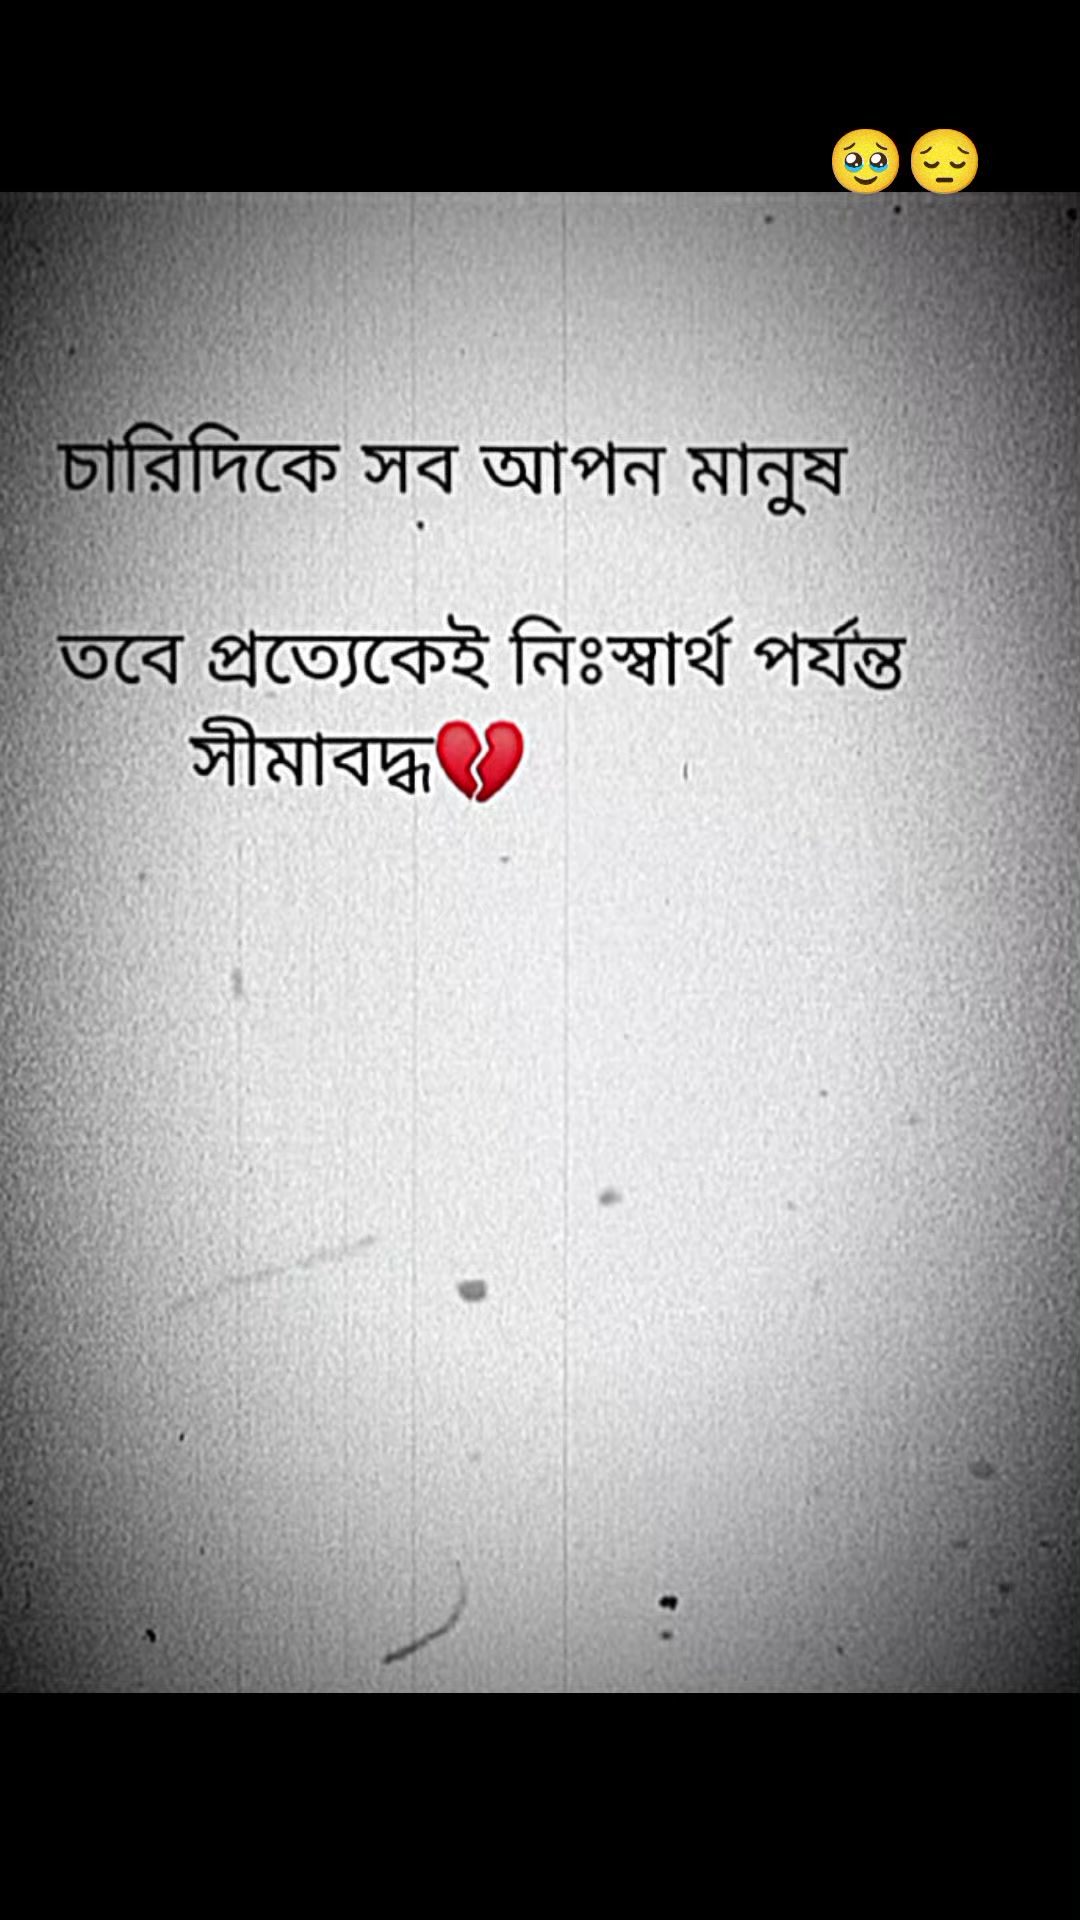 🥹😔
চারিদিকে সব আপন মানুষ
তবে প্রত্যেকেই নিঃস্বার্থ পর্যন্ত
সীমাবদ্ধ💔